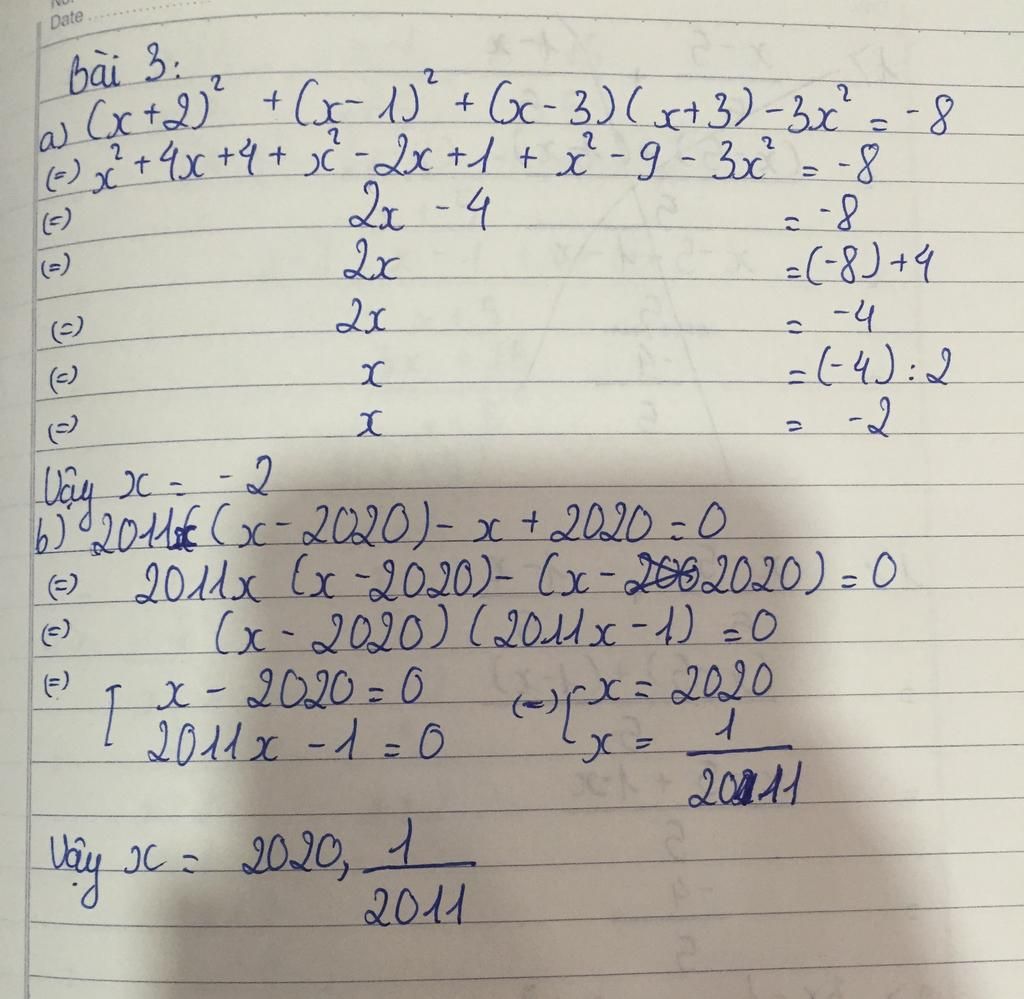 No.
Date
Bài 3:
a) (x+2)² + (x-1)² + (x-3)(x+3) - 3x² = -8
(=) x² + 4x + 4 + x² - 2x + 1 + x² - 9 - 3x² = -8
(=) 2x - 4 = -8
(=) 2x = (-8) + 4
(=) 2x = -4
(=) x = (-4) : 2
(=) x = -2
Vậy x = -2
b) 2011x(x-2020) - x + 2020 = 0
(=) 2011x (x-2020) - (x-2020) = 0
(=) (x-2020)(2011x-1) = 0
(=) [ x - 2020 = 0 (=) [ x = 2020
2011x - 1 = 0 x = 1/2011
Vậy x = 2020, 1/2011